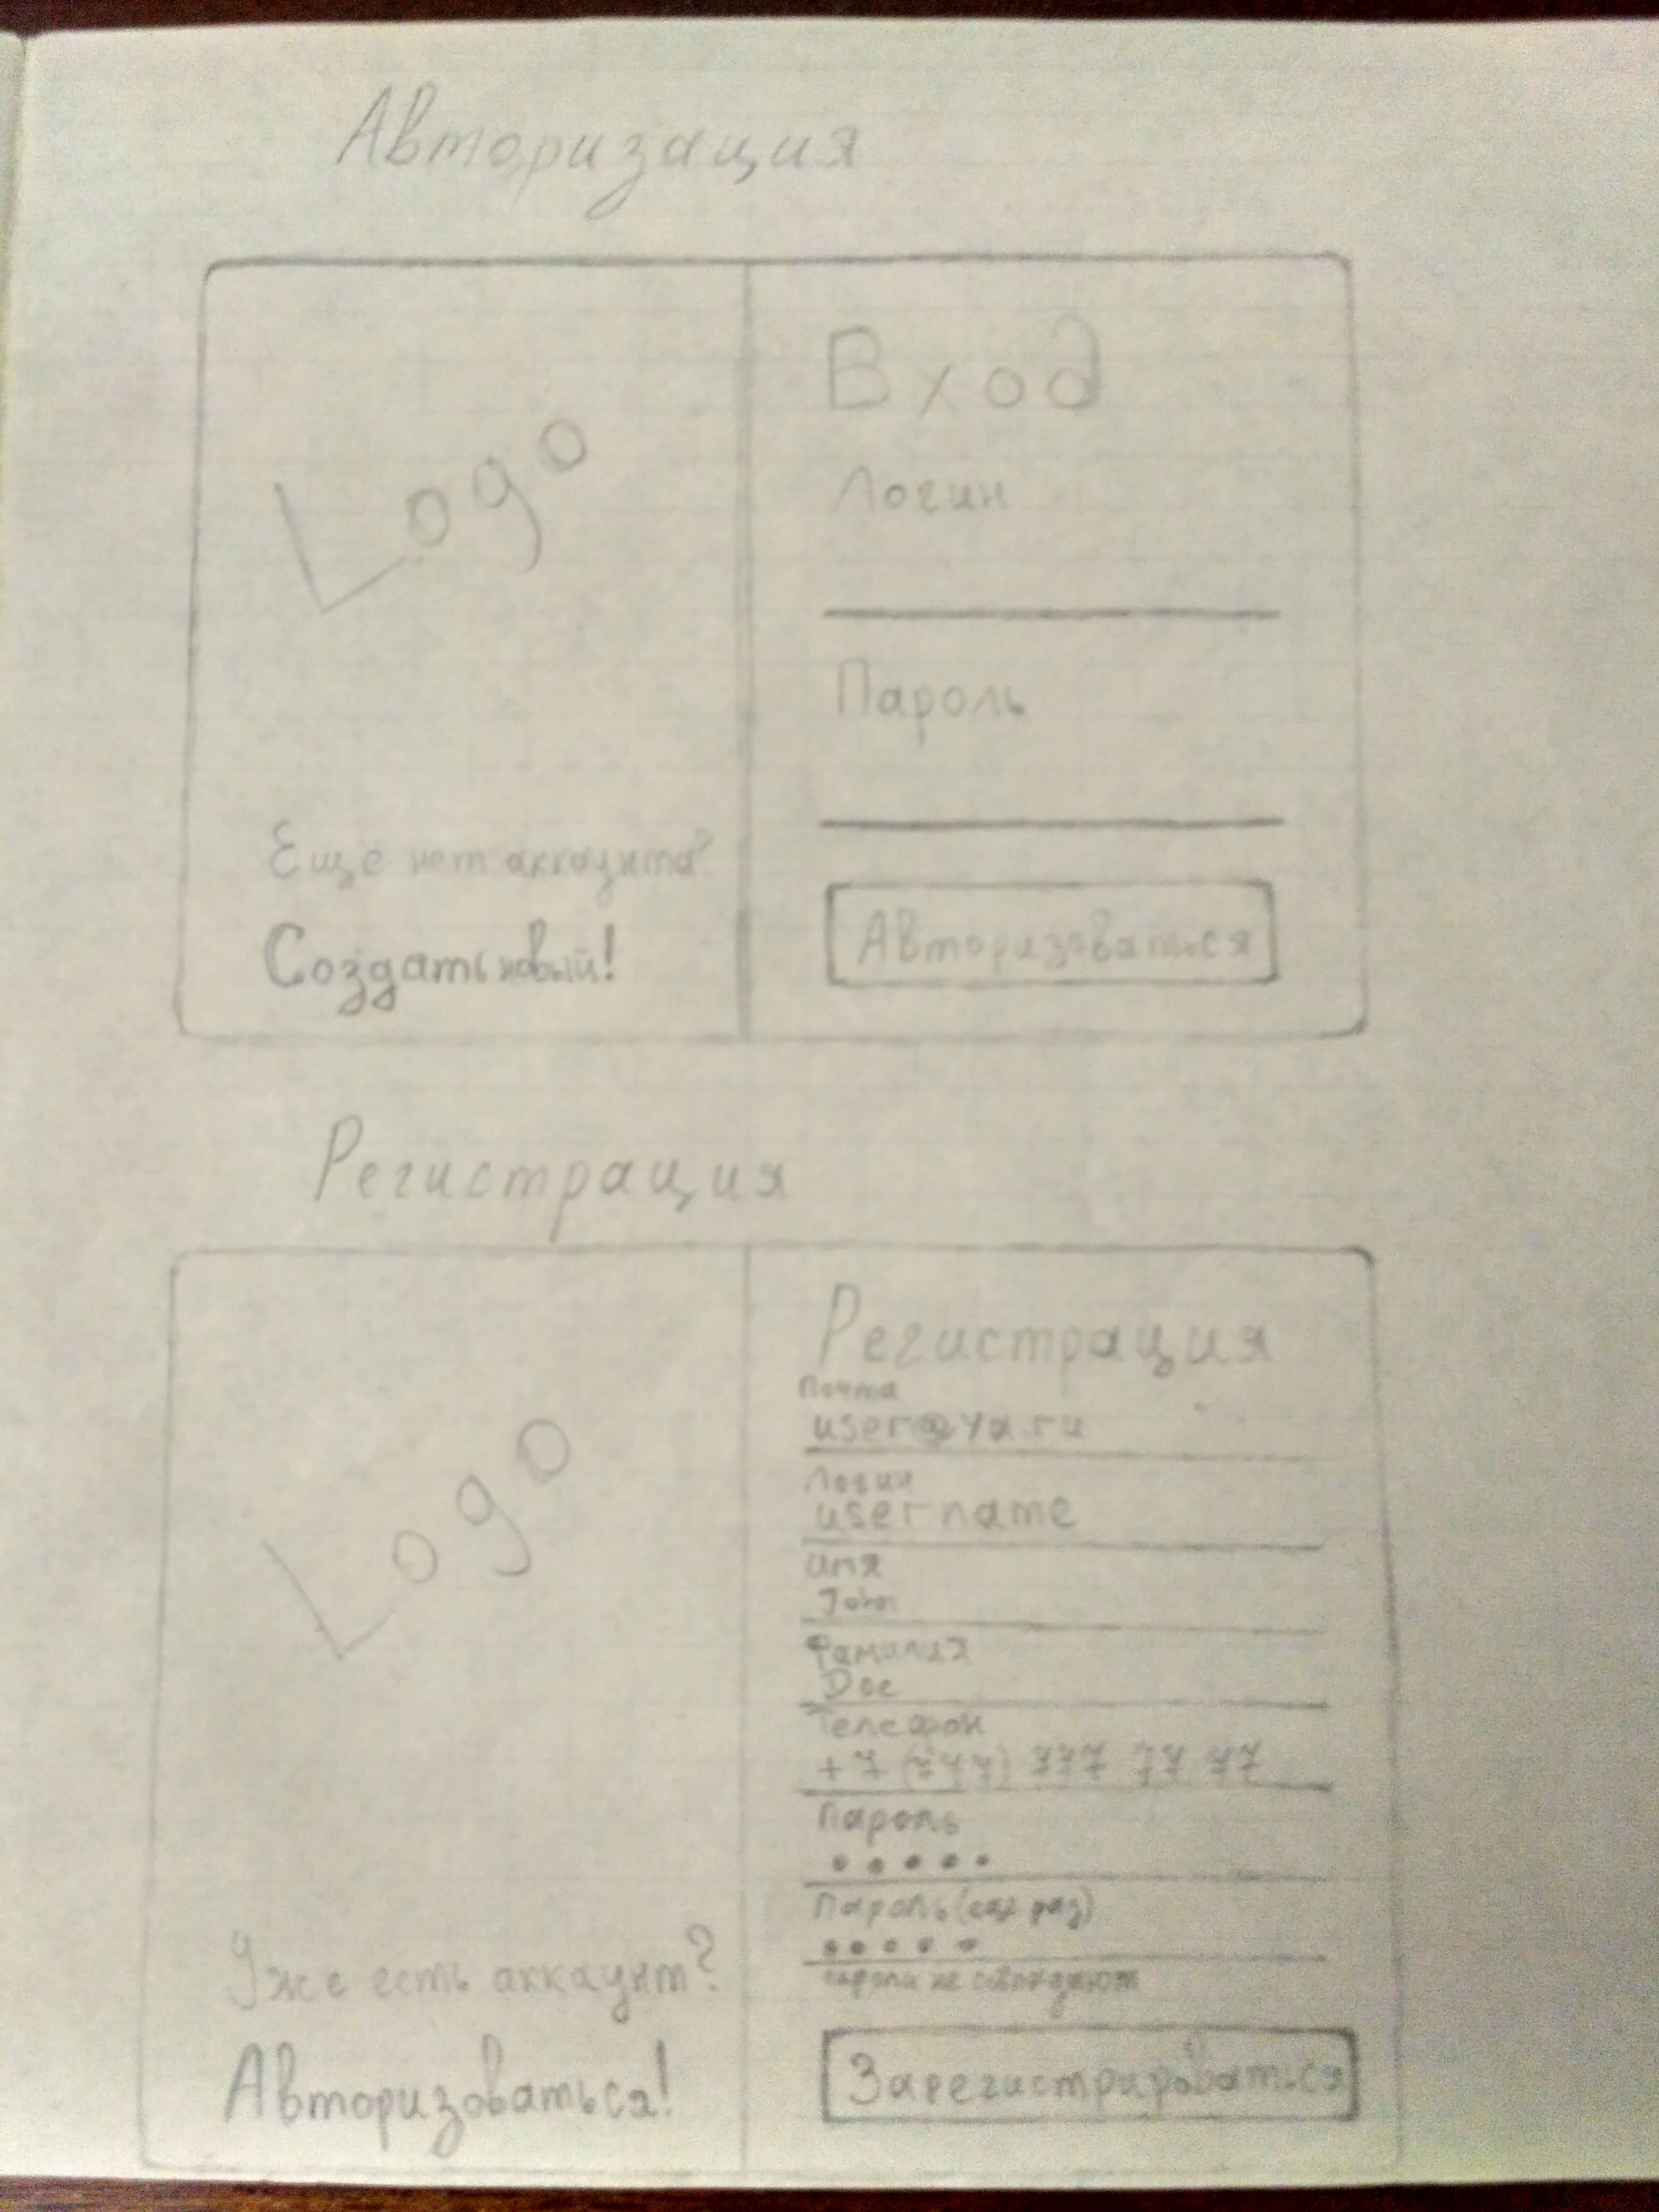 Авторизация
Logo
Ещё нет аккаунта?
Создать новый!
Вход
Логин
Пароль
Авторизоваться
Регистрация
Logo
Уже есть аккаунт?
Авторизоваться!
Регистрация
Почта
user@ya.ru
Логин
username
Имя
John
Фамилия
Doe
Телефон
+7 (777) 777 77 77
Пароль
•••••
Пароль (ещё раз)
•••••
пароли не совпадают
Зарегистрироваться